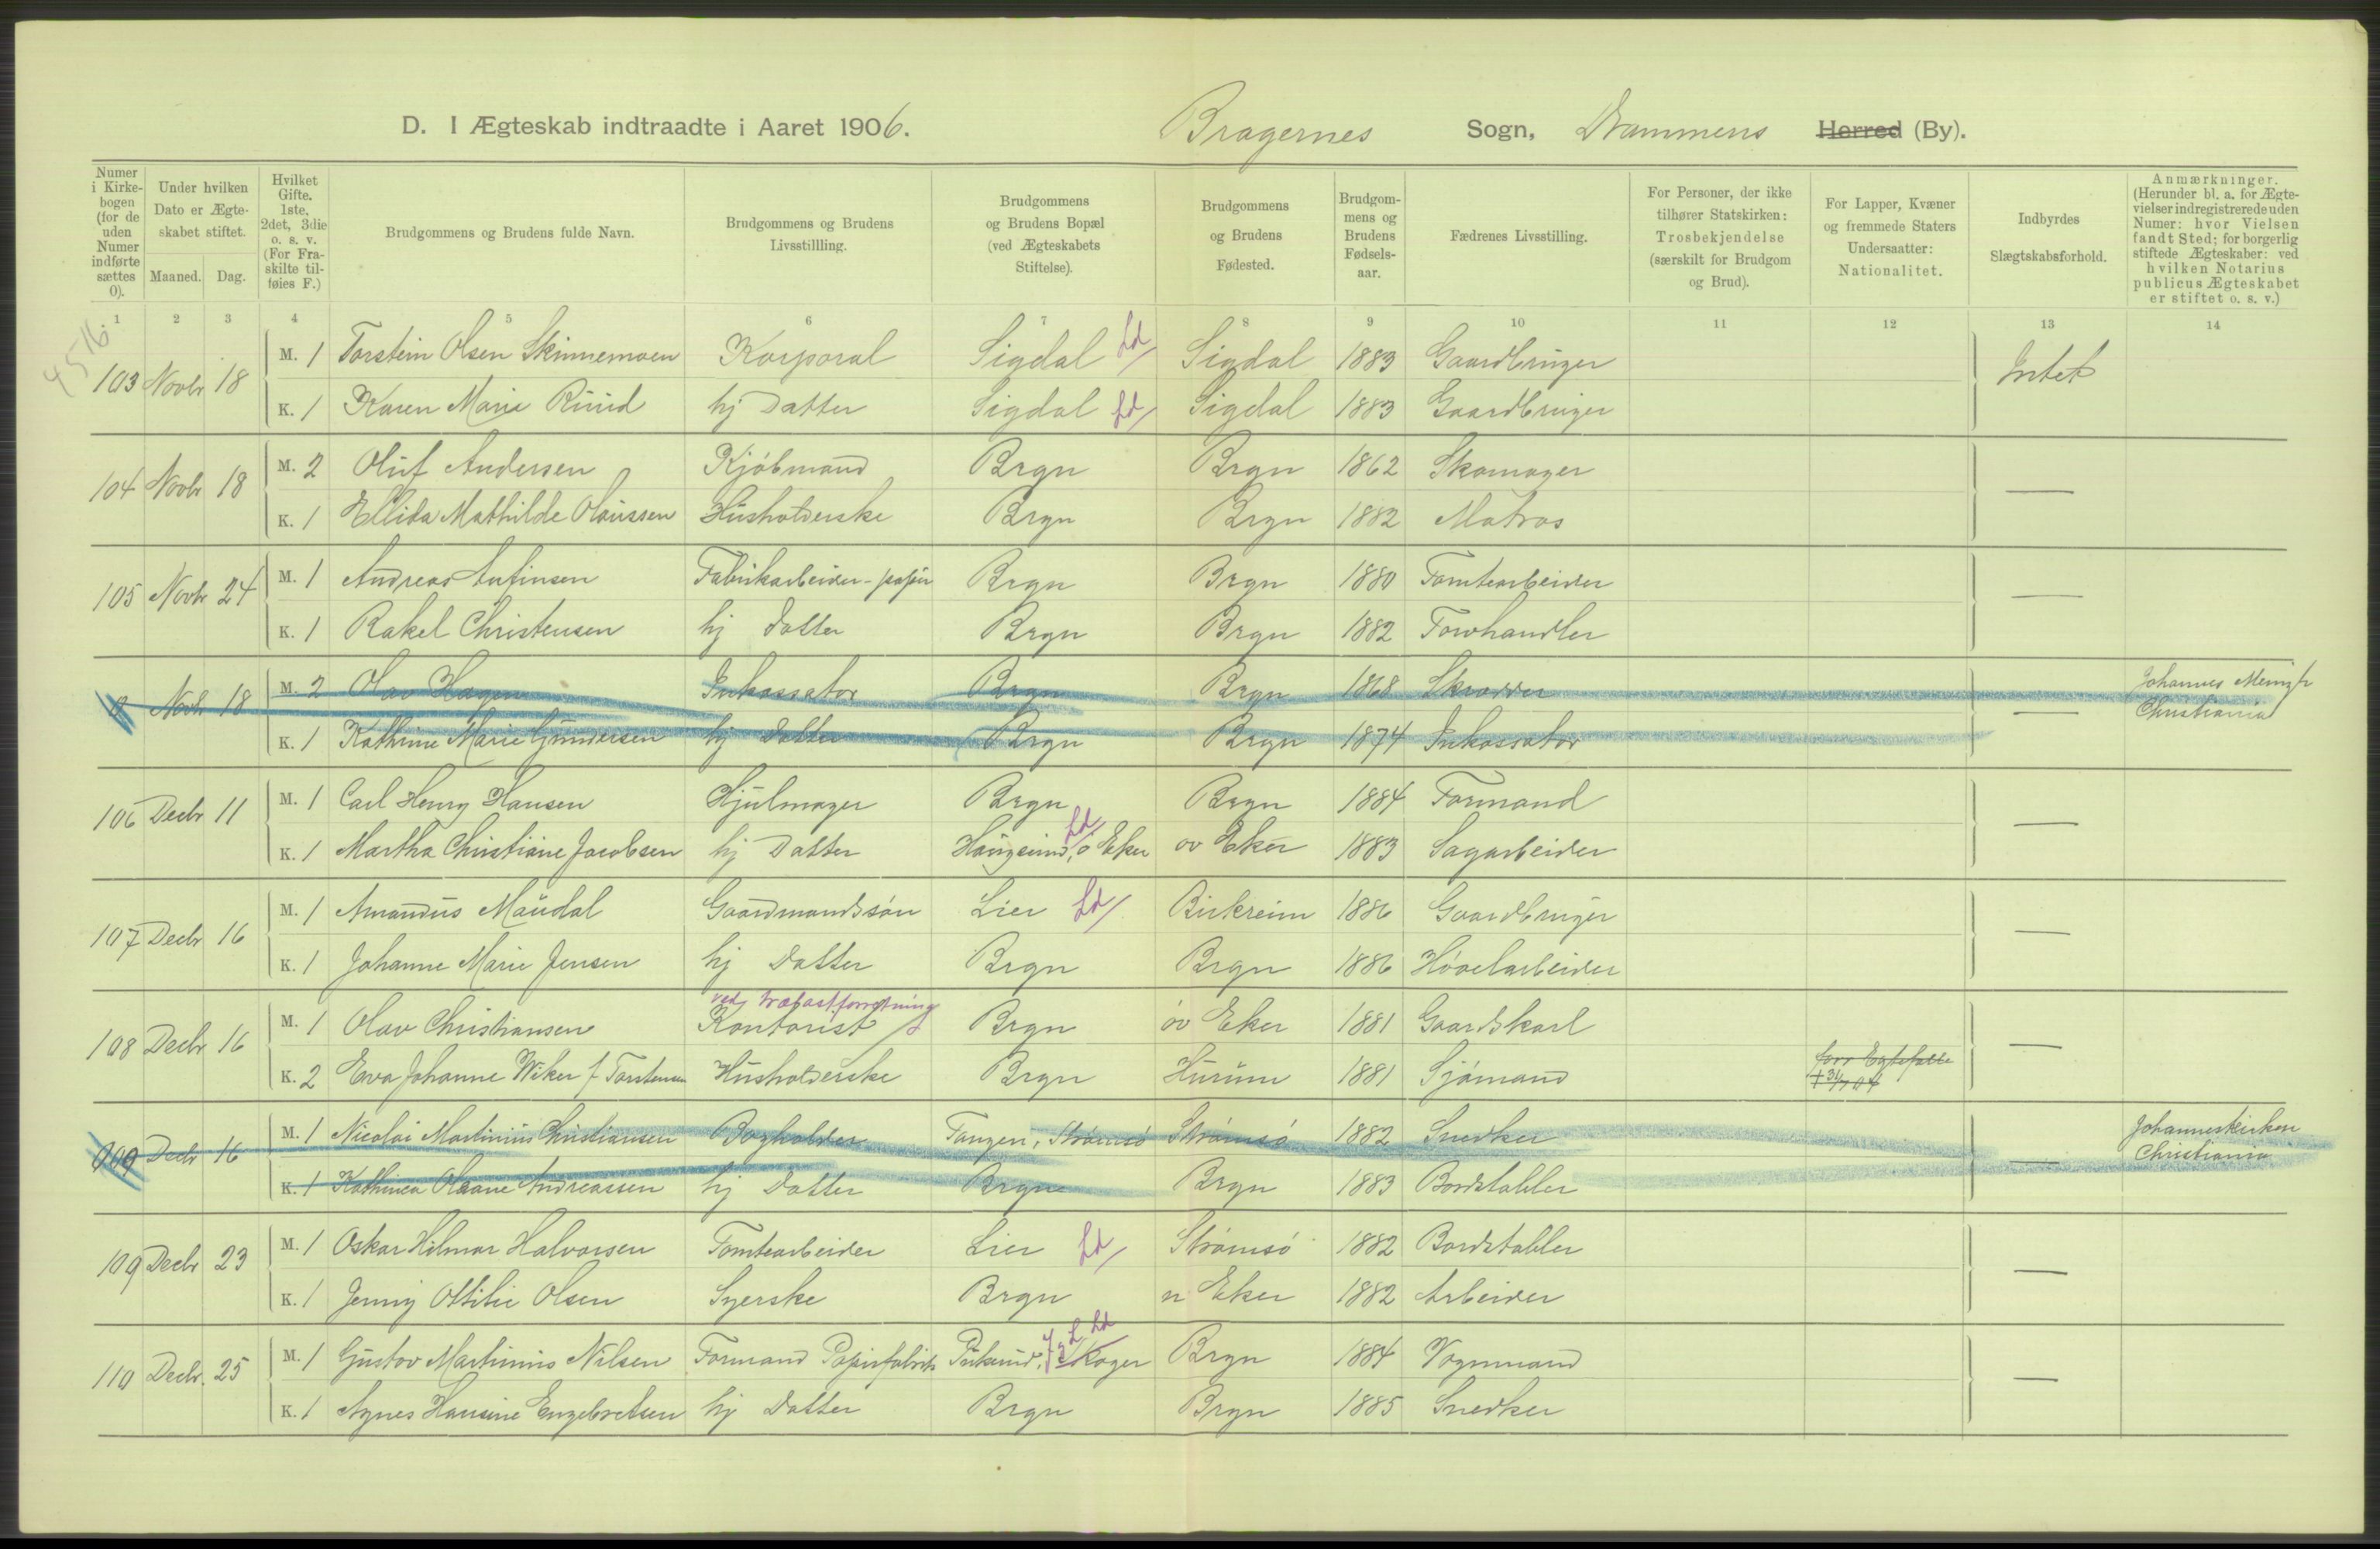 D. I Ægteskab indtraadte i Aaret 1906. Bragernes Sogn, Drammens Herred (By).
Numer i Kirkebogen (for de uden Numer indførte sættes 0).
Under hvilken Dato er Ægteskabet stiftet.
Maaned. Dag.
Hvilket Gifte. 1ste, 2det, 3die o. s. v. (For Fraskilte tilføies F.)
Brudgommens og Brudens fulde Navn.
Brudgommens og Brudens Livsstillling.
Brudgommens og Brudens Bopæl (ved Ægteskabets Stiftelse).
Brudgommens og Brudens Fødested.
Brudgommens og Brudens Fødselsaar.
Fædrenes Livsstilling.
For Personer, der ikke tilhører Statskirken: Trosbekjendelse (særskilt for Brudgom og Brud).
For Lapper, Kvæner og fremmede Staters Undersaatter: Nationalitet.
Indbyrdes Slægtskabsforhold.
Anmærkninger. (Herunder bl. a. for Ægtevielser indregistrerede uden Numer: hvor Vielsen fandt Sted; for borgerlig stiftede Ægteskaber: ved hvilken Notarius publicus Ægteskabet er stiftet o. s. v.)
1 2 3 4 5 6 7 8 9 10 11 12 13 14
4516
103 Novbr 18 M. 1 Torstein Olsen Skinnemoen Korporal Sigdal Ld Sigdal 1883 Gaardbruger Intet
K. 1 Karen Marie Ruud hj Datter Sigdal Ld Sigdal 1883 Gaardbruger
104 Novbr 18 M. 2 Oluf Andersen Kjöbmand Brgn Brgn 1862 Skomager —
K. 1 Ellida Mathilde Olaussen Husholderske Brgn Brgn 1882 Matros
105 Novbr 24 M. 1 Andreas Anfinsen Fabrikarbeider - papir Brgn Brgn 1880 Tomtearbeider —
K. 1 Rakel Christensen hj Datter Brgn Brgn 1882 Torvhandler
0 Novbr 18 M. 2 Olav Hagen Inkassator Brgn Brgn 1868 Skrædder — Johannes Menigh
Christiania
K. 1 Kathrine Marie Gundersen hj Datter Brgn Brgn 1874 Inkassator
106 Decbr 11 M. 1 Carl Henry Hansen Hjulmager Brgn Brgn 1884 Formand —
K. 1 Martha Christiane Jacobsen hj Datter Hougsund, ö Eker Ld ov Eker 1883 Sagarbeider
107 Decbr 16 M. 1 Amandus Maudal Gaardmandssön Lier Ld Birkreim 1886 Gaardbruger —
K. 1 Johanne Marie Jensen hj Datter Brgn Brgn 1886 Hövelarbeider
ved trælastforretning
108 Decbr 16 M. 1 Olav Christiansen Kontorist Brgn öv Eker 1881 Gaardskarl —
K. 2 Eva Johanne Wiker f Torstensen Husholderske Brgn Hurum 1881 Sjömand forr Egtefælle
† 31/7 04
109 Decbr 16 M. 1 Nicolai Martinius Christiansen Bogholder Tangen, Strömsö Strömsö 1882 Snedker — Johanneskirken
Christiania
K. 1 Kathinca Olaane Andreassen hj Datter Brgn Brgn 1883 Bordstabler
109 Decbr 23 M. 1 Oskar Hilmar Halvorsen Tomtearbeider Lier Ld Strömsö 1882 Bordstabler —
K. 1 Jenny Ottilie Olsen Syerske Brgn n Eker 1882 Arbeider
110 Decbr. 25 M. 1 Gustav Martinius Nilsen Formand Papirfabrik Skoger Ld Brgn 1884 Vognmand —
K. 1 Agnes Hansine Engebretsen hj Datter Brgn Brgn 1885 Snedker